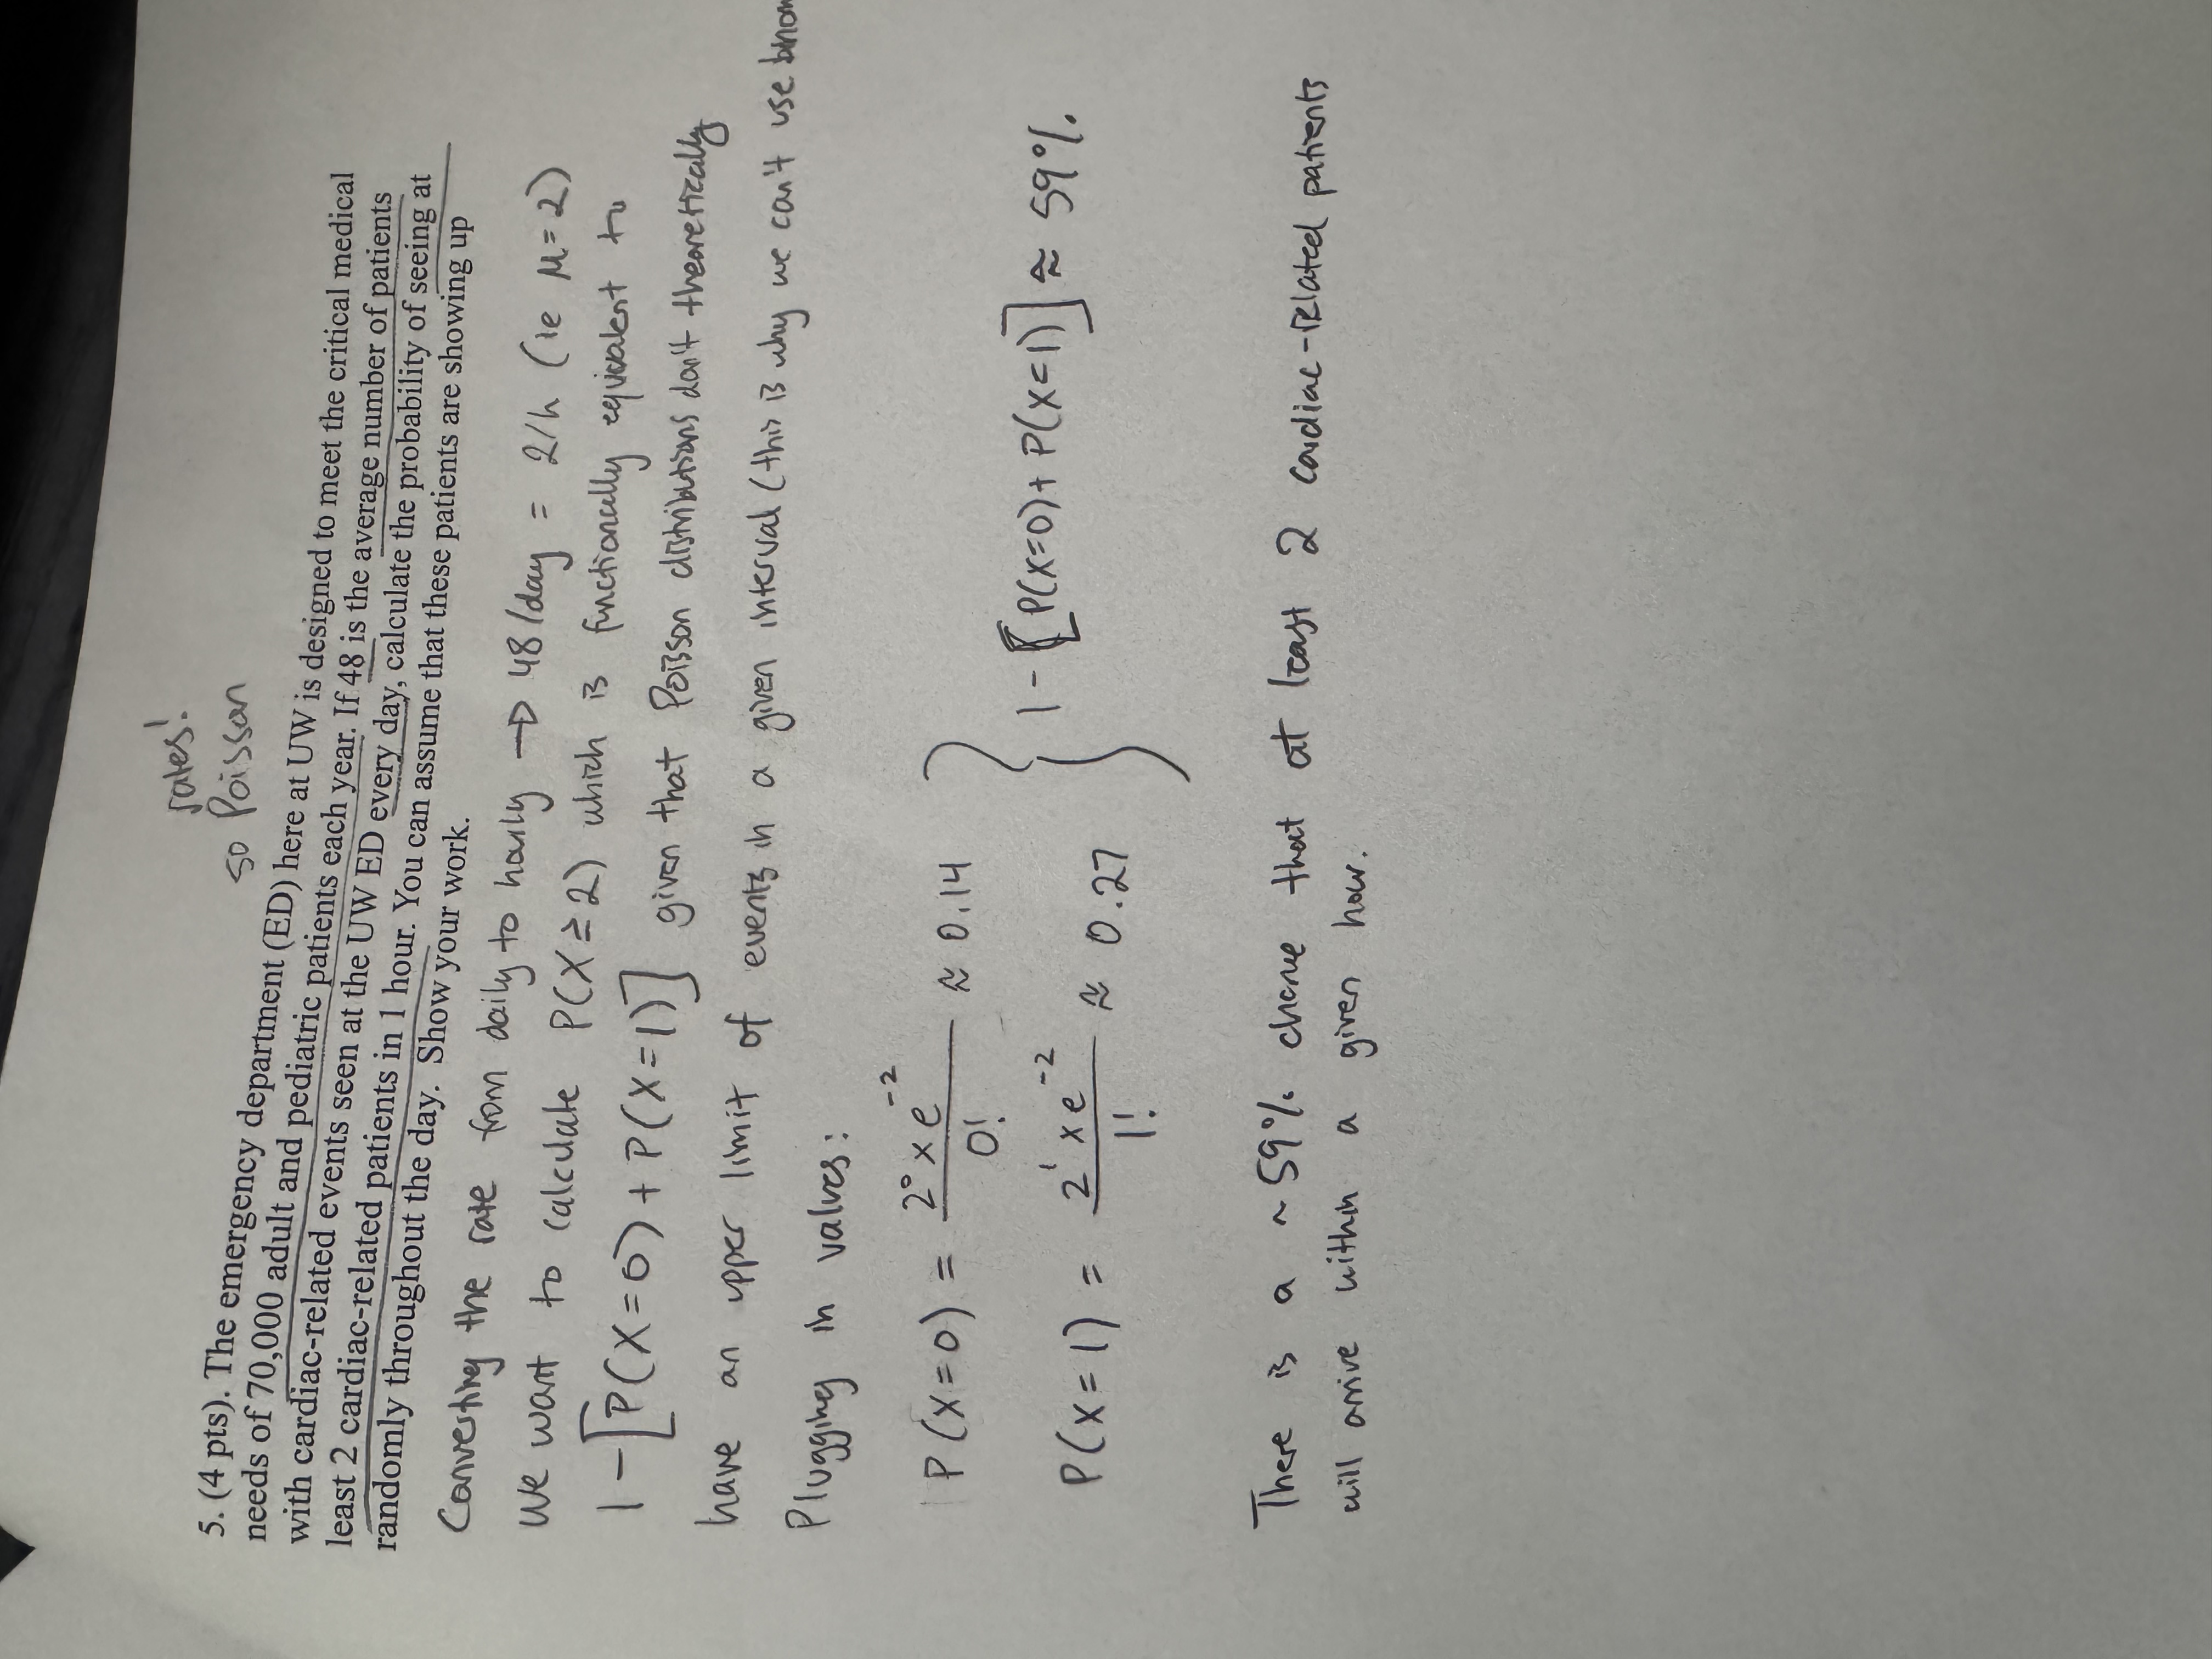 rates!
so Poisson
5. (4 pts). The emergency department (ED) here at UW is designed to meet the critical medical
needs of 70,000 adult and pediatric patients each year. If 48 is the average number of patients
with cardiac-related events seen at the UW ED every day, calculate the probability of seeing at
least 2 cardiac-related patients in 1 hour. You can assume that these patients are showing up
randomly throughout the day. Show your work.
Converting the rate from daily to hourly → 48/day = 2/h (ie μ=2)
We want to calculate P(X≥2) which is functionally equivalent to
1-[P(X=0)+P(X=1)] given that Poisson distributions don't theoretically
have an upper limit of events in a given interval (this is why we can't use binom
Plugging in values:
P(X=0) = 2⁰ x e⁻² / 0! ≈ 0.14
P(X=1) = 2¹ x e⁻² / 1! ≈ 0.27
} 1-[P(X=0)+P(X=1)] ≈ 59%.
There is a ~59% chance that at least 2 cardiac-related patients
will arrive within a given hour.